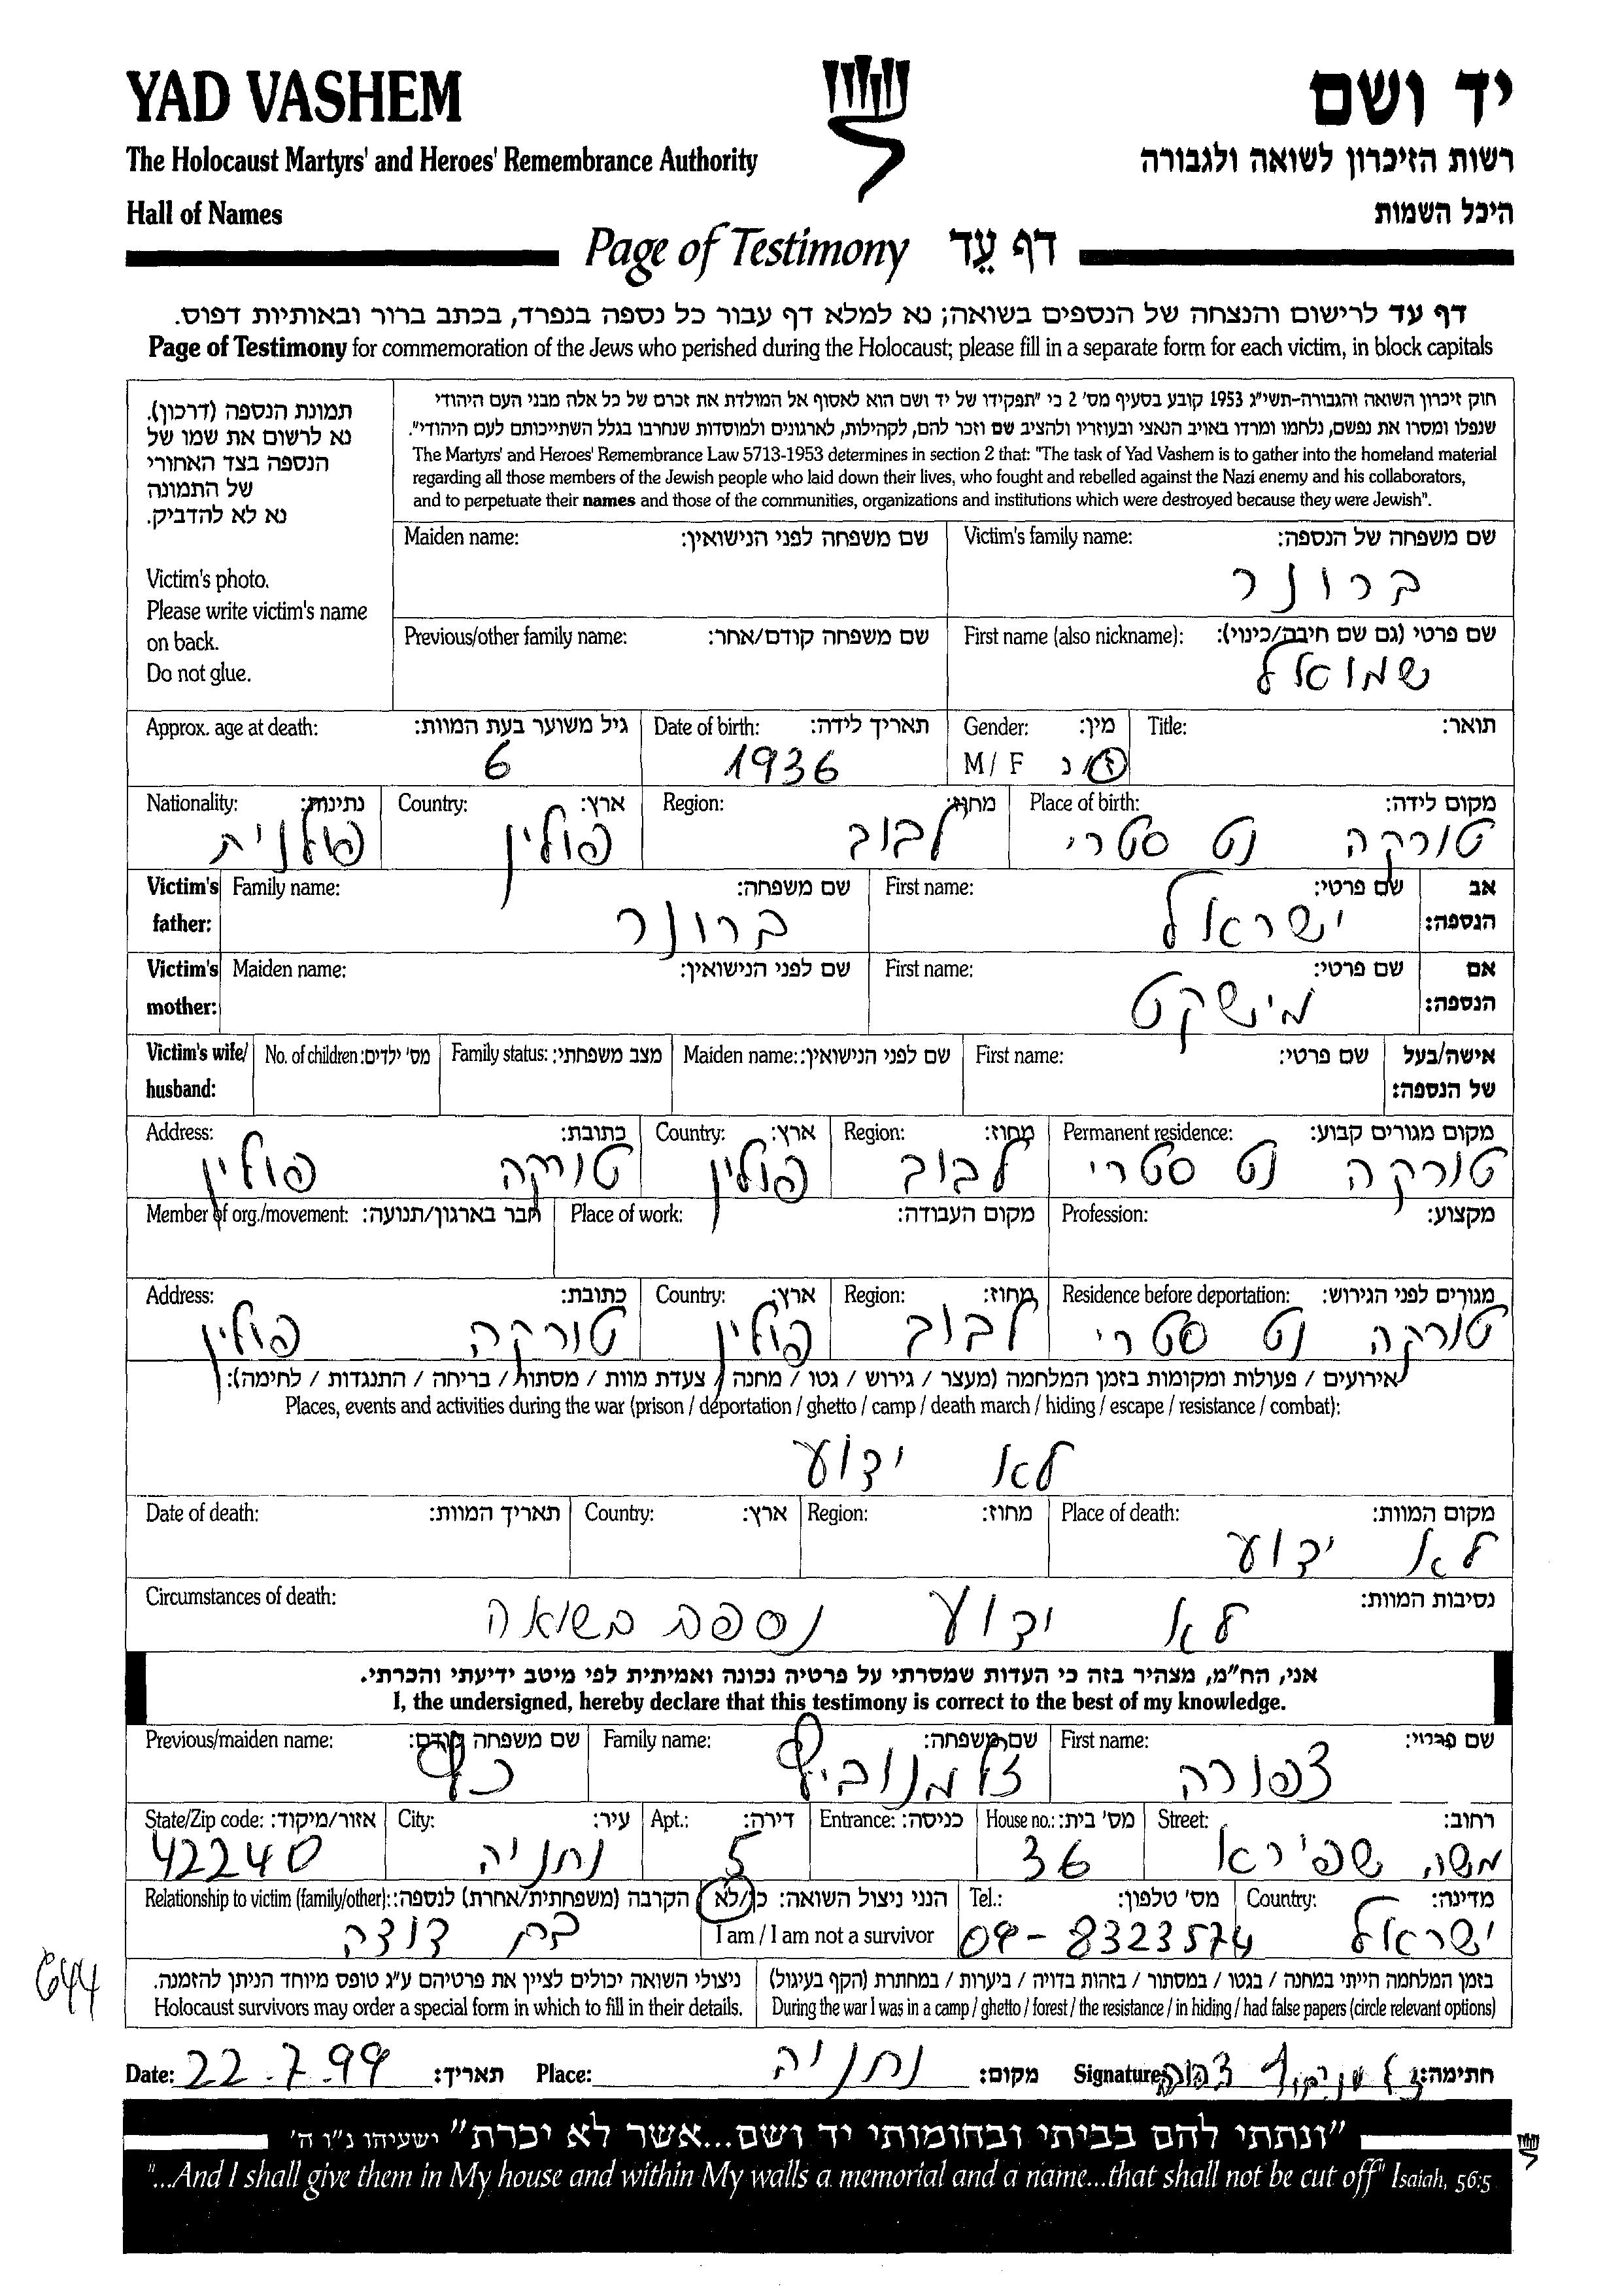 YAD VASHEM
יד ושם
The Holocaust Martyrs' and Heroes' Remembrance Authority
רשות הזיכרון לשואה ולגבורה
Hall of Names
היכל השמות
Page of Testimony דף עֵד
דף עד לרישום והנצחה של הנספים בשואה; נא למלא דף עבור כל נספה בנפרד, בכתב ברור ובאותיות דפוס.
Page of Testimony for commemoration of the Jews who perished during the Holocaust; please fill in a separate form for each victim, in block capitals
תמונת הנספה (דרכון).
נא לרשום את שמו של
הנספה בצד האחורי
של התמונה
נא לא להדביק.
Victim's photo.
Please write victim's name
on back.
Do not glue.
חוק זיכרון השואה והגבורה-תשי"ג 1953 קובע בסעיף מס' 2 כי "תפקידו של יד ושם הוא לאסוף אל המולדת את זכרם של כל אלה מבני העם היהודי
שנפלו ומסרו את נפשם, נלחמו ומרדו באויב הנאצי ובעוזריו ולהציב שם וזכר להם, לקהילות, לארגונים ולמוסדות שנחרבו בגלל השתייכותם לעם היהודי".
The Martyrs' and Heroes' Remembrance Law 5713-1953 determines in section 2 that: "The task of Yad Vashem is to gather into the homeland material
regarding all those members of the Jewish people who laid down their lives, who fought and rebelled against the Nazi enemy and his collaborators,
and to perpetuate their names and those of the communities, organizations and institutions which were destroyed because they were Jewish".
Victim's family name: שם משפחה של הנספה:
ברונר
Maiden name: שם משפחה לפני הנישואין:
First name (also nickname): שם פרטי (גם שם חיבה/כינוי):
שמואל
Previous/other family name: שם משפחה קודם/אחר:
Title: תואר:
Gender: מין:
M / F ז/נ
Date of birth: תאריך לידה:
1936
Approx. age at death: גיל משוער בעת המוות:
6
Place of birth: מקום לידה:
טורקה נט סטרי
Region: מחוז:
לבוב
Country: ארץ:
פולין
Nationality: נתינות:
פולנית
Victim's father: אב הנספה:
First name: שם פרטי:
ישראל
Family name: שם משפחה:
ברונר
Victim's mother: אם הנספה:
First name: שם פרטי:
מישקט
Maiden name: שם לפני הנישואין:
Victim's wife/ husband: אישה/בעל של הנספה:
First name: שם פרטי:
Maiden name: שם לפני הנישואין:
Family status: מצב משפחתי:
No. of children: מס' ילדים:
Permanent residence: מקום מגורים קבוע:
טורקה נט סטרי
Region: מחוז:
לבוב
Country: ארץ:
פולין
Address: כתובת:
טורקה פולין
Profession: מקצוע:
Place of work: מקום העבודה:
Member of org./movement: חבר בארגון/תנועה:
Residence before deportation: מגורים לפני הגירוש:
טורקה נט סטרי
Region: מחוז:
לבוב
Country: ארץ:
פולין
Address: כתובת:
טורקה פולין
אירועים / פעולות ומקומות בזמן המלחמה (מעצר / גירוש / גטו / מחנה / צעדת מוות / מסתור / בריחה / התנגדות / לחימה):
Places, events and activities during the war (prison / deportation / ghetto / camp / death march / hiding / escape / resistance / combat):
לא ידוע
Place of death: מקום המוות:
לא ידוע
Region: מחוז:
Country: ארץ:
Date of death: תאריך המוות:
Circumstances of death: נסיבות המוות:
לא ידוע נספה בשואה
אני, הח"מ, מצהיר בזה כי העדות שמסרתי על פרטיה נכונה ואמיתית לפי מיטב ידיעתי והכרתי.
I, the undersigned, hereby declare that this testimony is correct to the best of my knowledge.
First name: שם פרטי:
צפורה
Family name: שם משפחה:
זלמנוביץ
Previous/maiden name: שם משפחה קודם:
כץ
Street: רחוב:
משה שפירא
House no.: מס' בית:
36
Entrance: כניסה:
Apt.: דירה:
5
City: עיר:
נתניה
State/Zip code: אזור/מיקוד:
42240
Country: מדינה:
ישראל
Tel.: מס' טלפון:
09-8323574
הנני ניצול השואה: כן/לא
I am / I am not a survivor
Relationship to victim (family/other): הקרבה (משפחתית/אחרת) לנספה:
בת דודה
בזמן המלחמה הייתי במחנה / בגטו / במסתור / בזהות בדויה / ביערות / במחתרת (הקף בעיגול)
During the war I was in a camp / ghetto / forest / the resistance / in hiding / had false papers (circle relevant options)
ניצולי השואה יכולים לציין את פרטיהם ע"ג טופס מיוחד הניתן להזמנה.
Holocaust survivors may order a special form in which to fill in their details.
644
Date: 22.7.99 תאריך:
Place: נתניה מקום:
Signature: חתימה:
"ונתתי להם בביתי ובחומותי יד ושם...אשר לא יכרת" ישעיהו נ"ו ה'
"...And I shall give them in My house and within My walls a memorial and a name...that shall not be cut off" Isaiah, 56:5